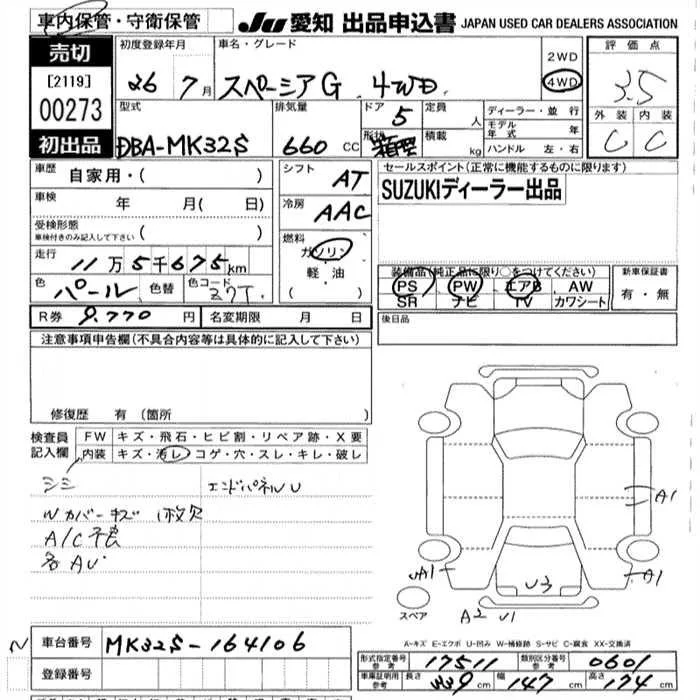 車内保管・守衛保管
JU 愛知 出品申込書 JAPAN USED CAR DEALERS ASSOCIATION
売切
[2119]
00273
初出品
初度登録年月
26 7月
車名・グレード
スペーシアG 4WD
2WD
4WD
評価点
3.5
外装 内装
C C
型式
DBA-MK32S
排気量
660 cc
ドア 5
形状 箱型
定員 人
積載 kg
ディーラー・並行
モデル年式 年
ハンドル 左・右
車歴 自家用・( )
車検 年 月( 日)
受検形態
車検付きのみ記入して下さい ( )
走行 11万5千675km
色 パール 色替 色コード Z7T
シフト AT
冷房 AAC
燃料
ガソリン
軽油
( )
セールスポイント(正常に機能するものに限ります)
SUZUKIディーラー出品
装備品(純正品に限り○をつけてください)
PS PW エアB AW
SR ナビ TV カワシート
新車保証書
有・無
R券 9.770 円 名変期限 月 日
後日品
注意事項申告欄(不具合内容等は具体的に記入して下さい)
修復歴 有(箇所 )
検査員記入欄
FW キズ・飛石・ヒビ割・リペア跡・X要
内装 キズ・汚レ・コゲ・穴・スレ・キレ・破レ
シミ
エンドパネルU
Wカバーキズ 1枚欠
A/C
各AU
A1
A1
A1
U3
A2 U1
スペア
A-キズ E-エクボ U-凹み W-補修跡 S-サビ C-腐食 XX-交換済
N
車台番号 MK32S-164106
登録番号
形式指定番号 参考 17511
類別区分番号 参考 0601
車庫証明用 参考 長さ 339cm 幅 147cm 高さ 174cm